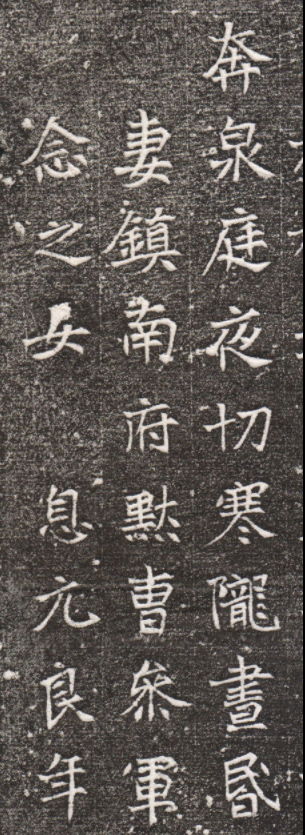 奔泉庭夜切寒隴晝昏
妻鎮南府默曹叅軍
念之女 息元良年